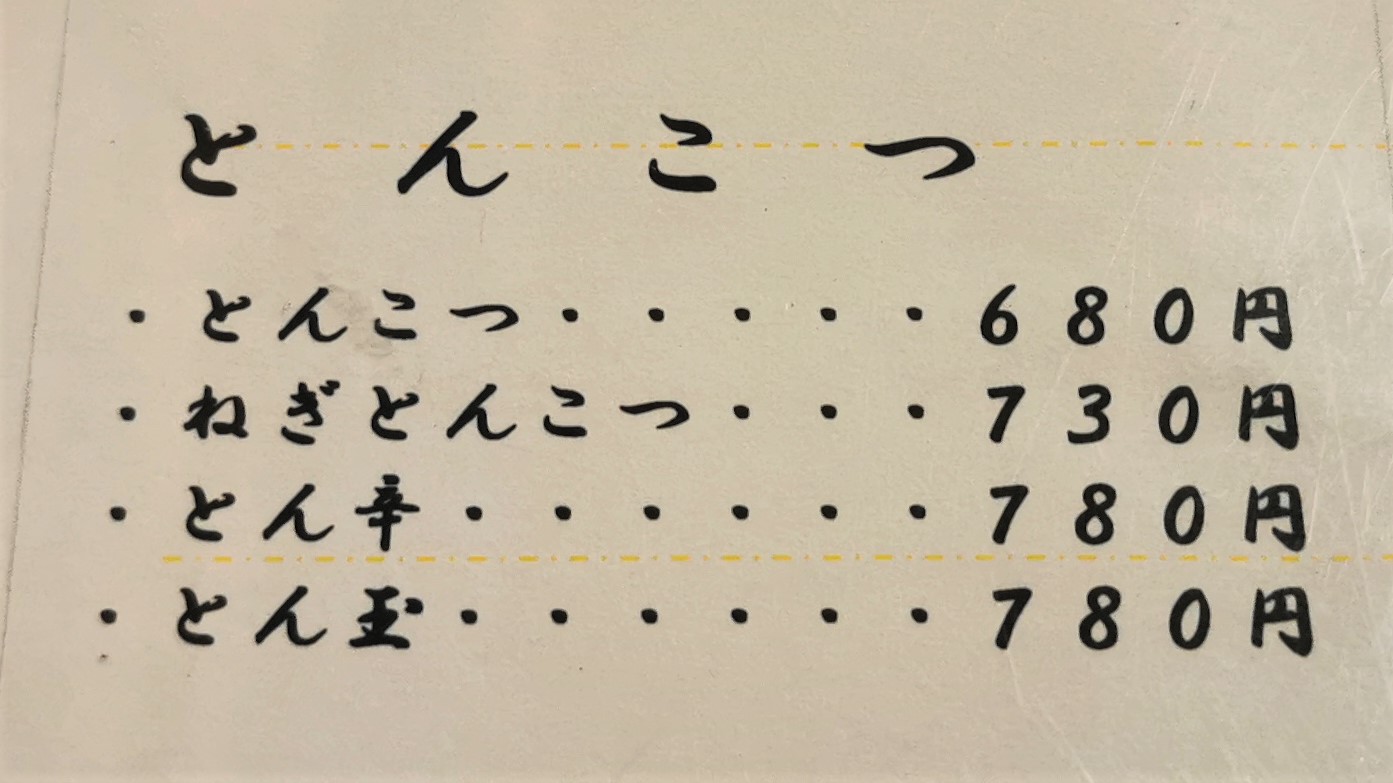 とんこつ
・とんこつ・・・・・680円
・ねぎとんこつ・・・730円
・とん辛・・・・・・780円
・とん玉・・・・・・780円